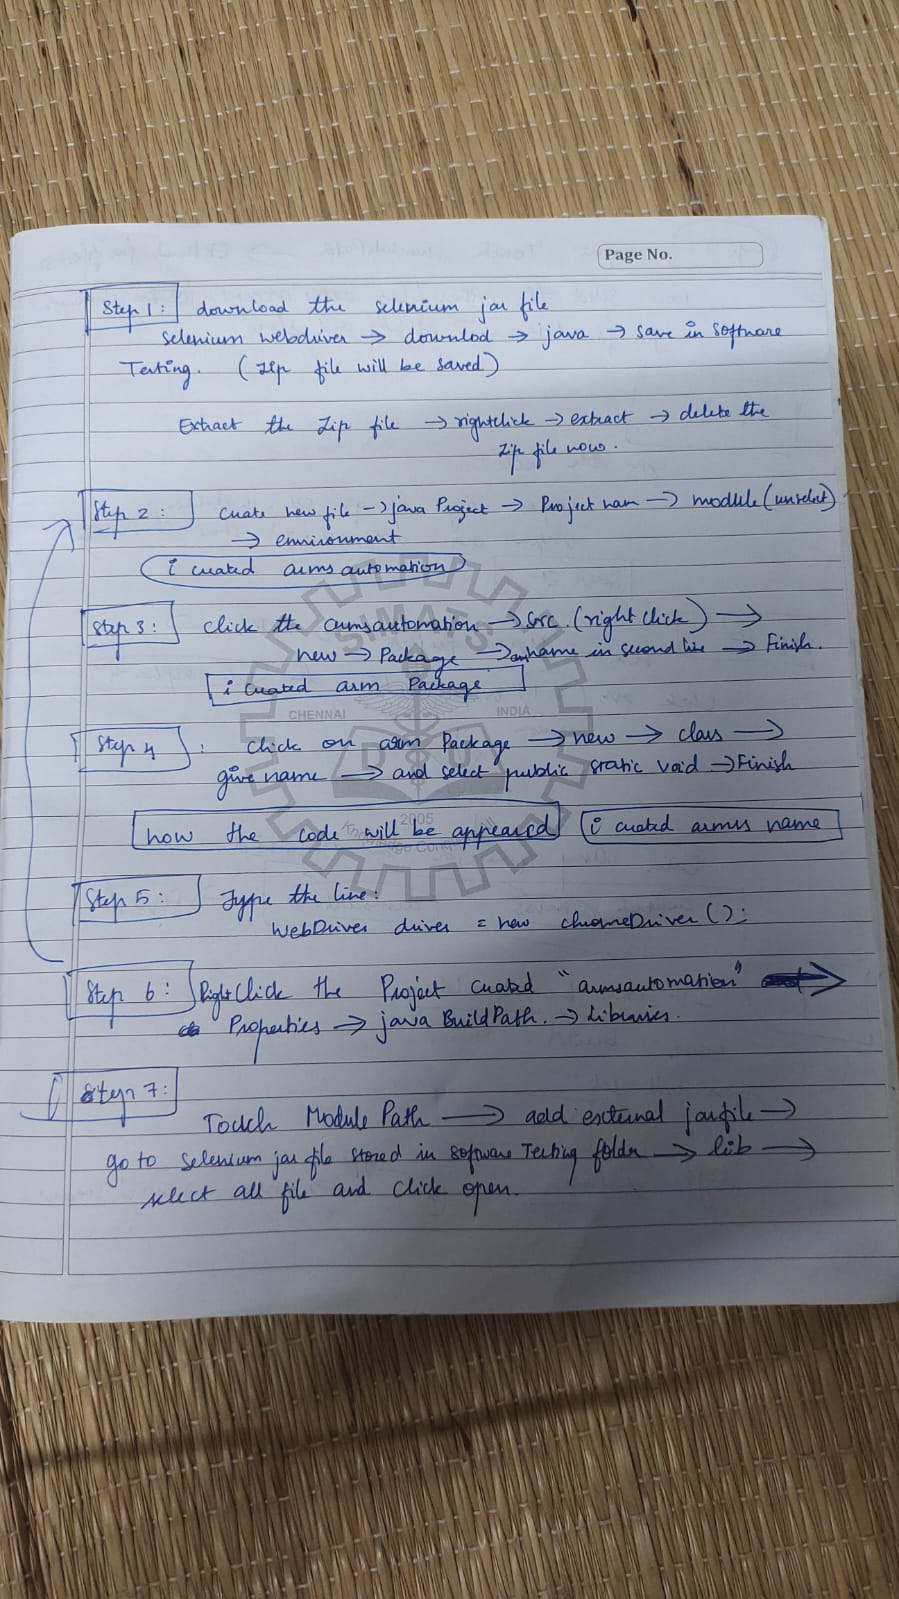 Page No.
Step 1: download the selenium jar file
selenium webdriver → downlod → java → save in Software
Testing. (Zip file will be saved)
Extract the Zip file → rightclick → extract → delete the
Zip file now.
Step 2: Create new file → java Project → Project nam → module (unselect)
→ environment
i created armsautomation
Step 3: click the armsautomation → Src. (right click) →
new → Package → name in second line → Finish.
i created arm Package
SIMATS
CHENNAI INDIA
Step 4: Click on arm Package → new → class →
give name → and select public static void → Finish
2005
now the code will be appeared i created armss name
Step 5: Type the line:
WebDriver driver = new chromeDriver();
Step 6: RightClick the Project created "armsautomation" →
Properties → java BuildPath. → Libraries.
Step 7:
Touch Module Path → add external jarfile →
go to selenium jar file stored in software Testing folder → lib →
select all file and click open.